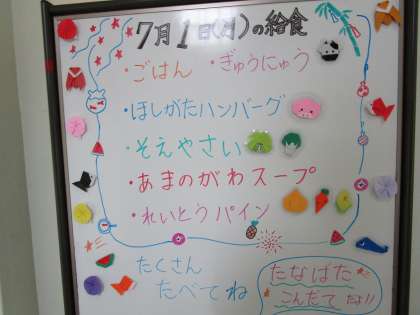 7月1日(月)の給食
・ごはん ・ぎゅうにゅう
・ほしがたハンバーグ
・そえやさい
・あまのがわスープ
・れいとうパイン
たくさん
たべてね
たなばた
こんだて だよ!!